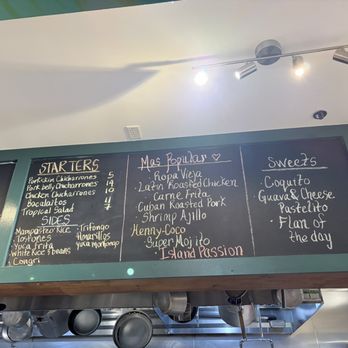 STARTERS
Pork skin Chicharrones 5
Pork belly Chicharrones 14
Chicken Chicharrones 10
Bacalaitos 7
Tropical Salad 7
SIDES
Mamposteo Rice
Tostones
Yuca Frita
White Rice & beans
Congri
Trifongo
Amarillos
Yuca Mofongo
Mas Popular ♡
Ropa Vieja
Latin Roasted Chicken
Carne Frita
Cuban Roasted Pork
Shrimp Ajillo
Henny-Coco
Super Mojito
Island Passion
Sweets
Coquito
Guava & Cheese
Pastelito
Flan of
the day